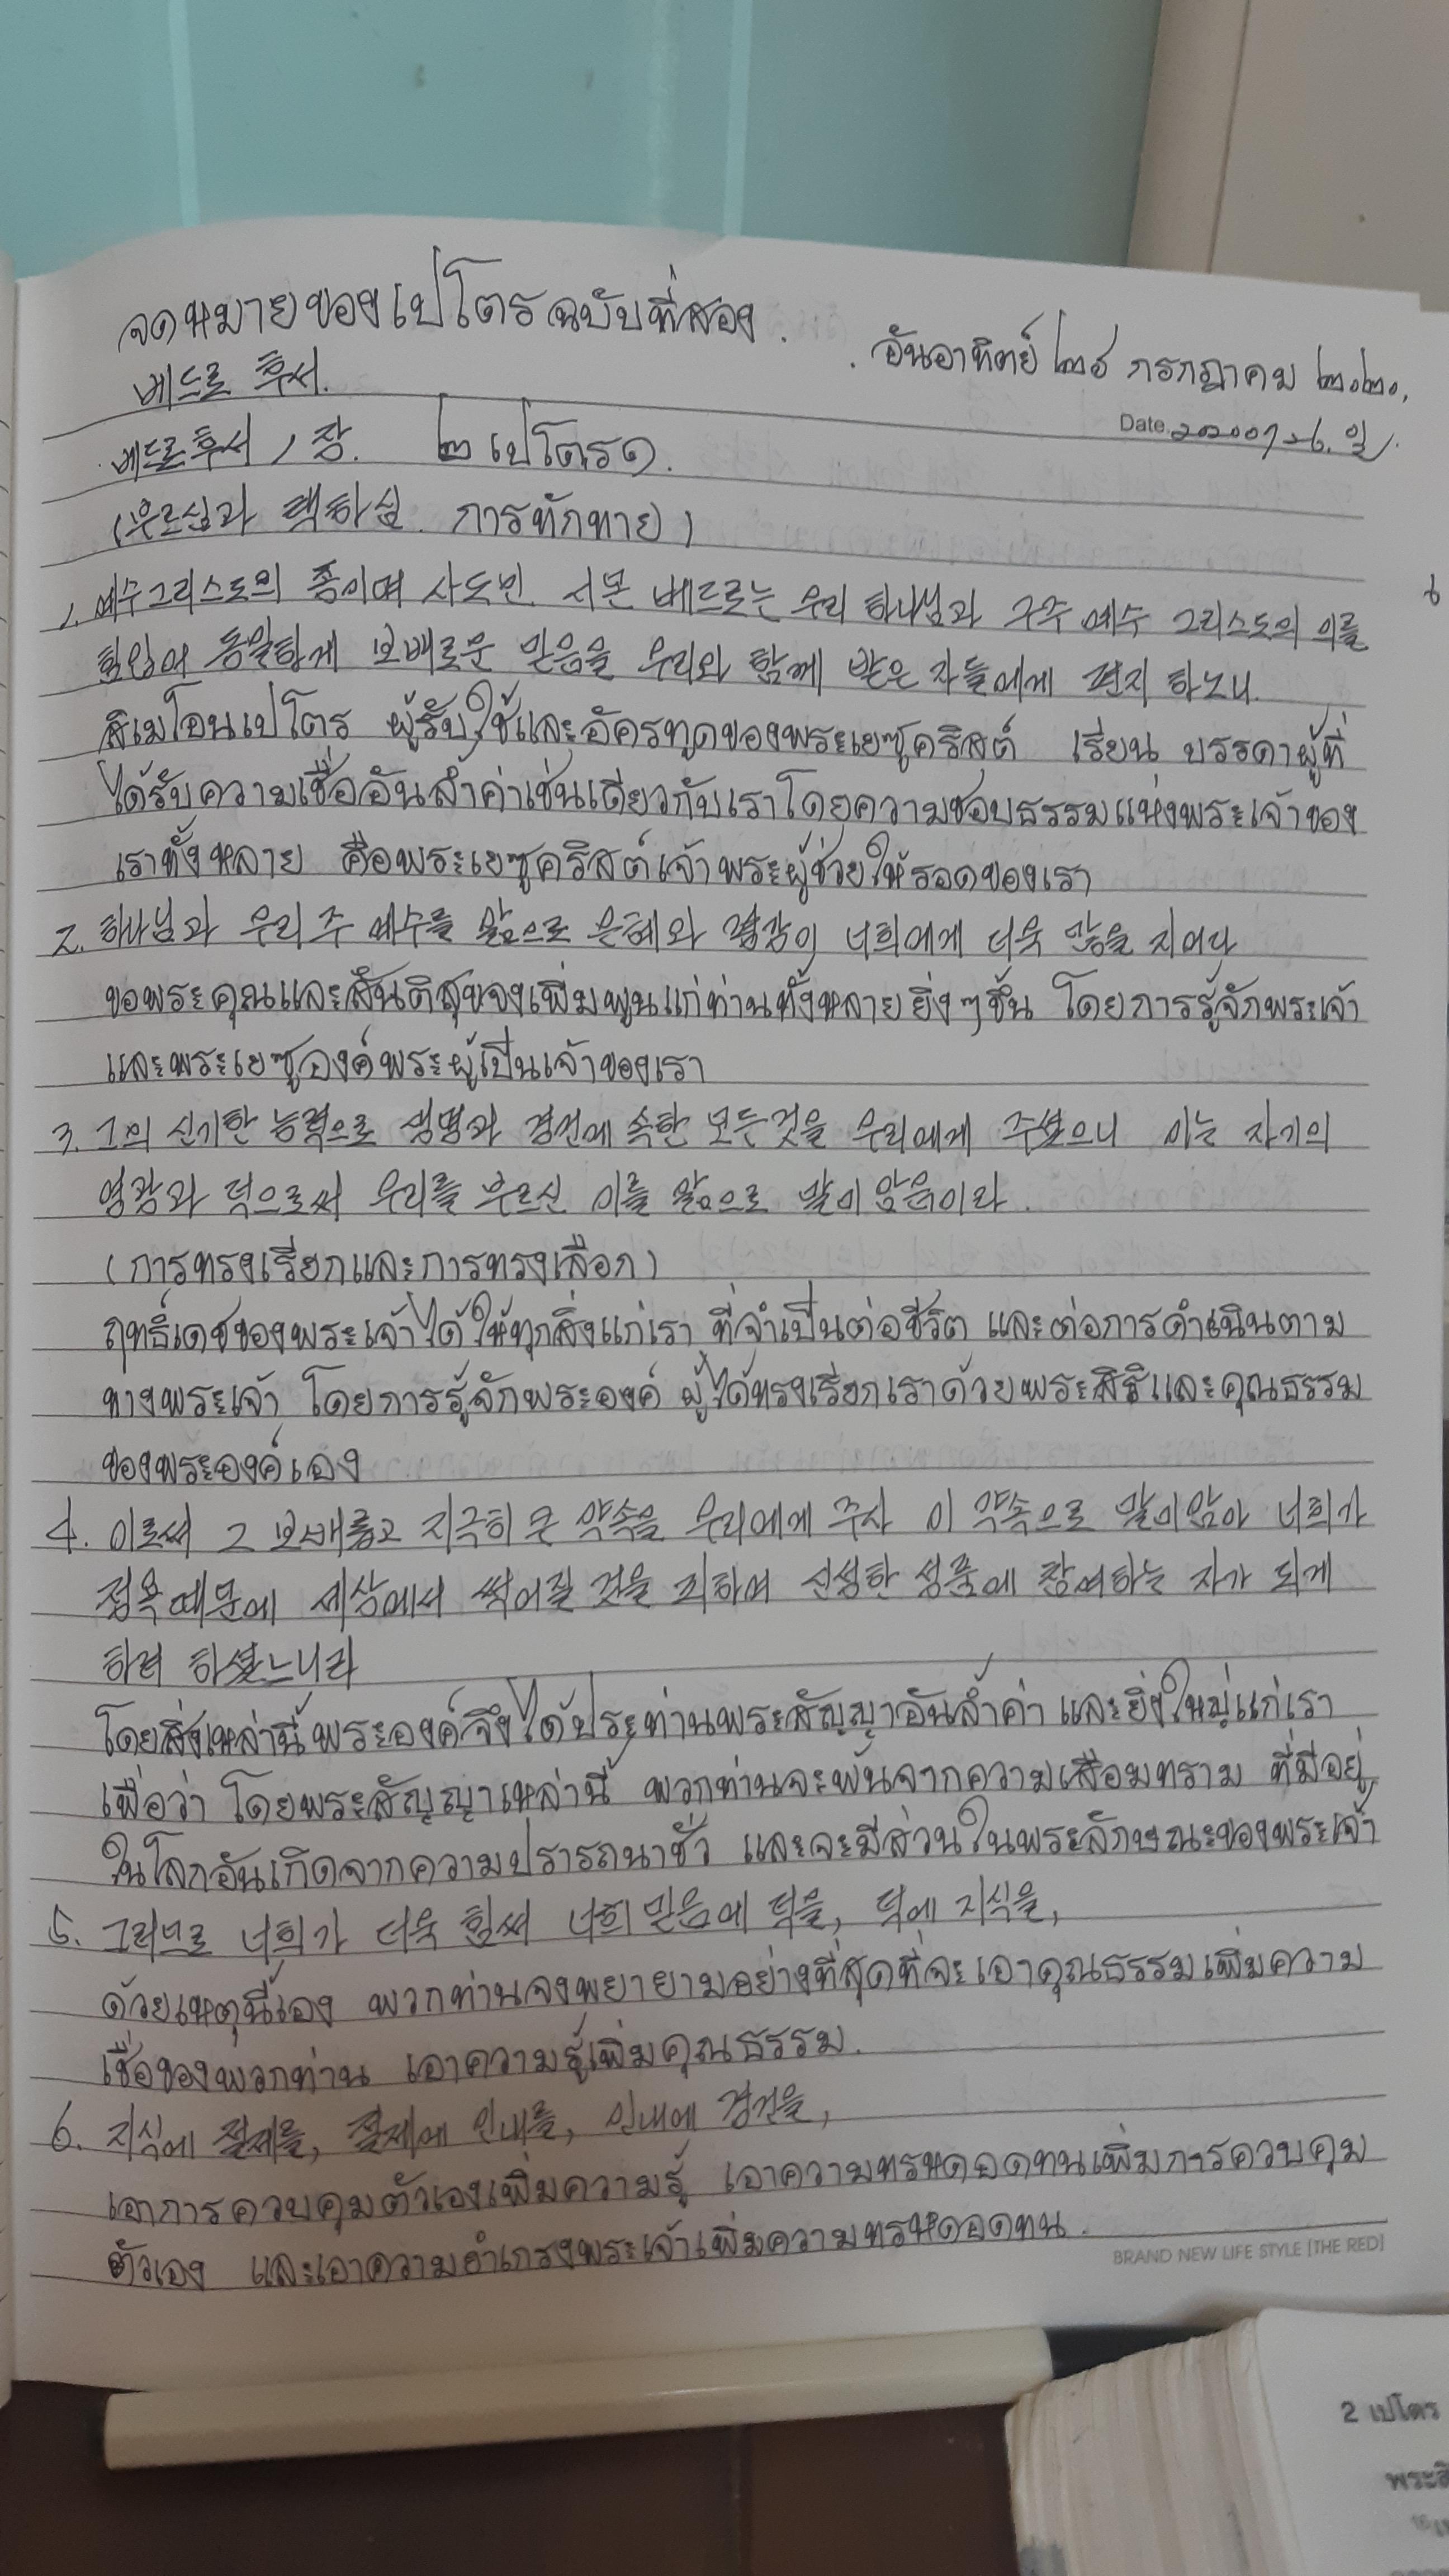 จดหมายของเปโตรฉบับที่สอง.
. อันอาทิตย์ ๒๖ กรกฎาคม ๒๐๒๐.
베드로 후서.
Date. 20200726. 일.
베드로후서 1장. ๒ เปโตร ๑.
(부르심과 택하심. การทักทาย)
1. 예수그리스도의 종이며 사도인 시몬 베드로는 우리 하나님과 구주 예수 그리스도의 의를
힘입어 동일하게 보배로운 믿음을 우리와 함께 받은 자들에게 편지 하노니.
สิเมโอนเปโตร ผู้รับใช้และอัครทูตของพระเยซูคริสต์ เรียน บรรดาผู้ที่
ได้รับความเชื่ออันล้ำค่าเช่นเดียวกับเราโดยความชอบธรรมแห่งพระเจ้าของ
เราทั้งหลาย คือพระเยซูคริสต์เจ้าพระผู้ช่วยให้รอดของเรา
2. 하나님과 우리 주 예수를 앎으로 은혜와 평강이 너희에게 더욱 많을 지어다
ขอพระคุณและสันติสุขจงเพิ่มพูนแก่ท่านทั้งหลายยิ่งๆขึ้น โดยการรู้จักพระเจ้า
และพระเยซูองค์พระผู้เป็นเจ้าของเรา
3. 그의 신기한 능력으로 생명과 경건에 속한 모든것을 우리에게 주셨으니 이는 자기의
영광과 덕으로써 우리를 부르신 이를 앎으로 말미암음이라.
(การทรงเรียกและการทรงเลือก)
ฤทธิ์เดชของพระเจ้าได้ให้ทุกสิ่งแก่เรา ที่จำเป็นต่อชีวิต และต่อการดำเนินตาม
ทางพระเจ้า โดยการรู้จักพระองค์ ผู้ได้ทรงเรียกเราด้วยพระสิริและคุณธรรม
ของพระองค์เอง
4. 이로써 그 보배롭고 지극히 큰 약속을 우리에게 주사 이 약속으로 말미암아 너희가
정욕때문에 세상에서 썩어질 것을 피하여 신성한 성품에 참여하는 자가 되게
하려 하셨느니라
โดยสิ่งเหล่านี้พระองค์จึงได้ประท่านพระสัญญาอันล้ำค่า และยิ่งใหญ่แก่เรา
เพื่อว่า โดยพระสัญญาเหล่านี้ พวกท่านจะพ้นจากความเสื่อมทราม ที่มีอยู่
ในโลกอันเกิดจากความปรารถนาชั่ว และจะมีส่วนในพระลักษณะของพระเจ้า
5. 그러므로 너희가 더욱 힘써 너희 믿음에 덕을, 덕에 지식을,
ด้วยเหตุนี้เอง พวกท่านจงพยายามอย่างที่สุดที่จะเอาคุณธรรมเพิ่มความ
เชื่อของพวกท่าน เอาความรู้เพิ่มคุณธรรม.
6. 지식에 절제를, 절제에 인내를, 인내에 경건을,
เอาการควบคุมตัวเองเพิ่มความรู้ เอาความทรหดอดทนเพิ่มการควบคุม
ตัวเอง และเอาความยำเกรงพระเจ้าเพิ่มความทรหดอดทน.
BRAND NEW LIFE STYLE [THE RED]
2 เปโตร